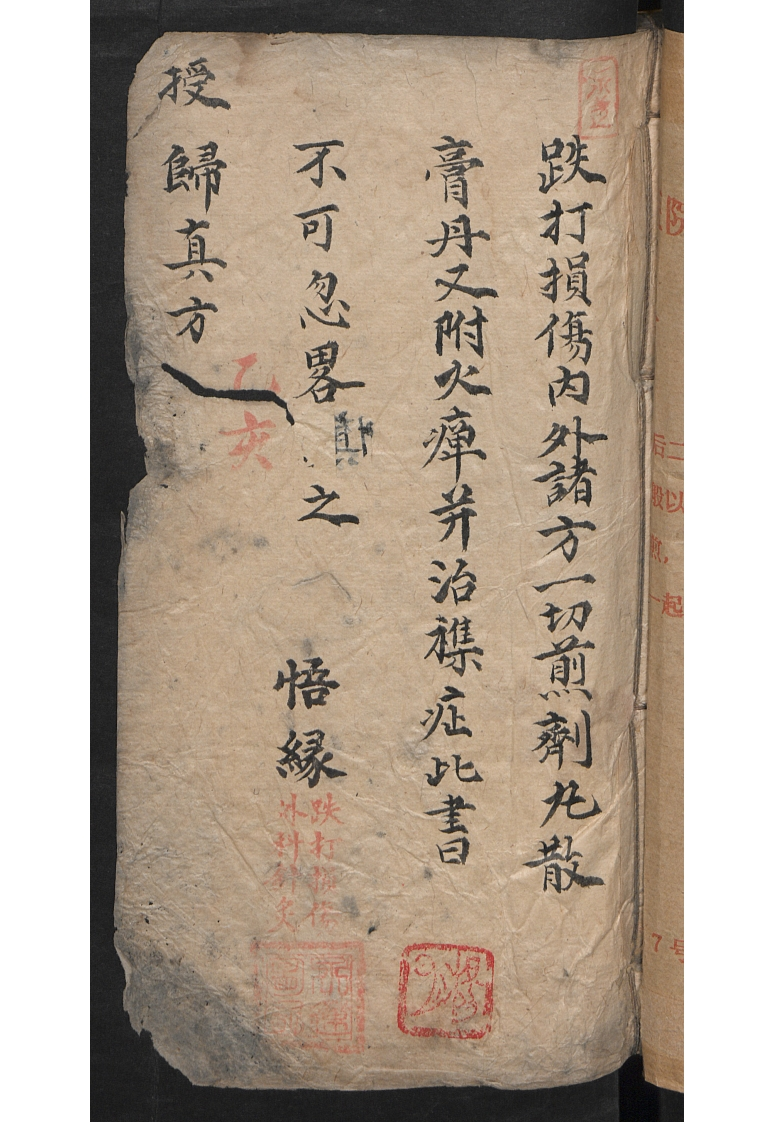 跌打損傷内外諸方一切煎劑丸散
膏丹又附火瘅并治襍症此書曰
不可忽畧之
悟緣
授歸真方
乙亥
跌打損傷
外科針灸
院
后二
以
煎，
一起
7号